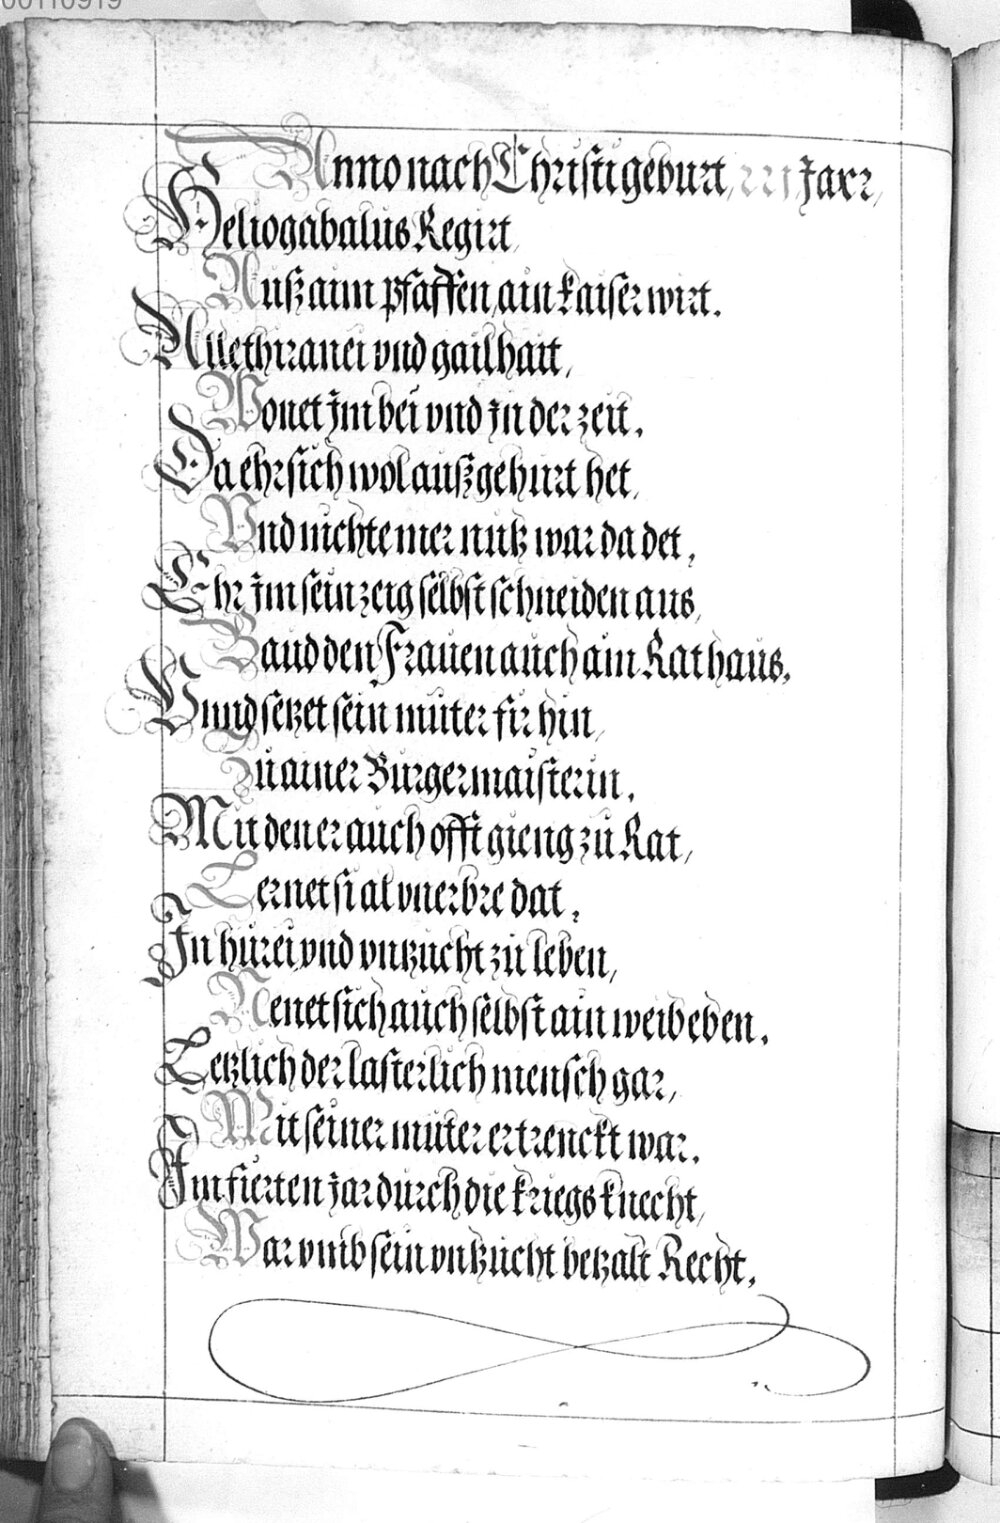 00110919
Anno nach Christi geburt, 221 Jarr,
Heliogabalus Regirt,
Auß aim pfaffen, ain kaiser wirt.
Alle thiranei vnd gailhait,
Wonet Im bei vnd In der zeit.
Da ehr sich wol außgehurt het,
Vnd nichte mer nutz war da det,
Ehr Im sein zeig selbst schneiden aus,
Baud den Frauen auch ain Rathaus,
Vnnd setzet sein muter fir hin,
Zu ainer Burgermaisterin.
Mit dener auch offt gieng zu Rat,
Lernet si al vnerbre dat,
In hurei vnd vnzucht zu leben,
Nenet sich auch selbst ain weib eben.
Letzlich der lasterlich mensch gar,
Mit seiner muter ertrenckt war.
Im fierten Jar durch die kriegs knecht,
War vmb sein vntzucht betzalt Recht.